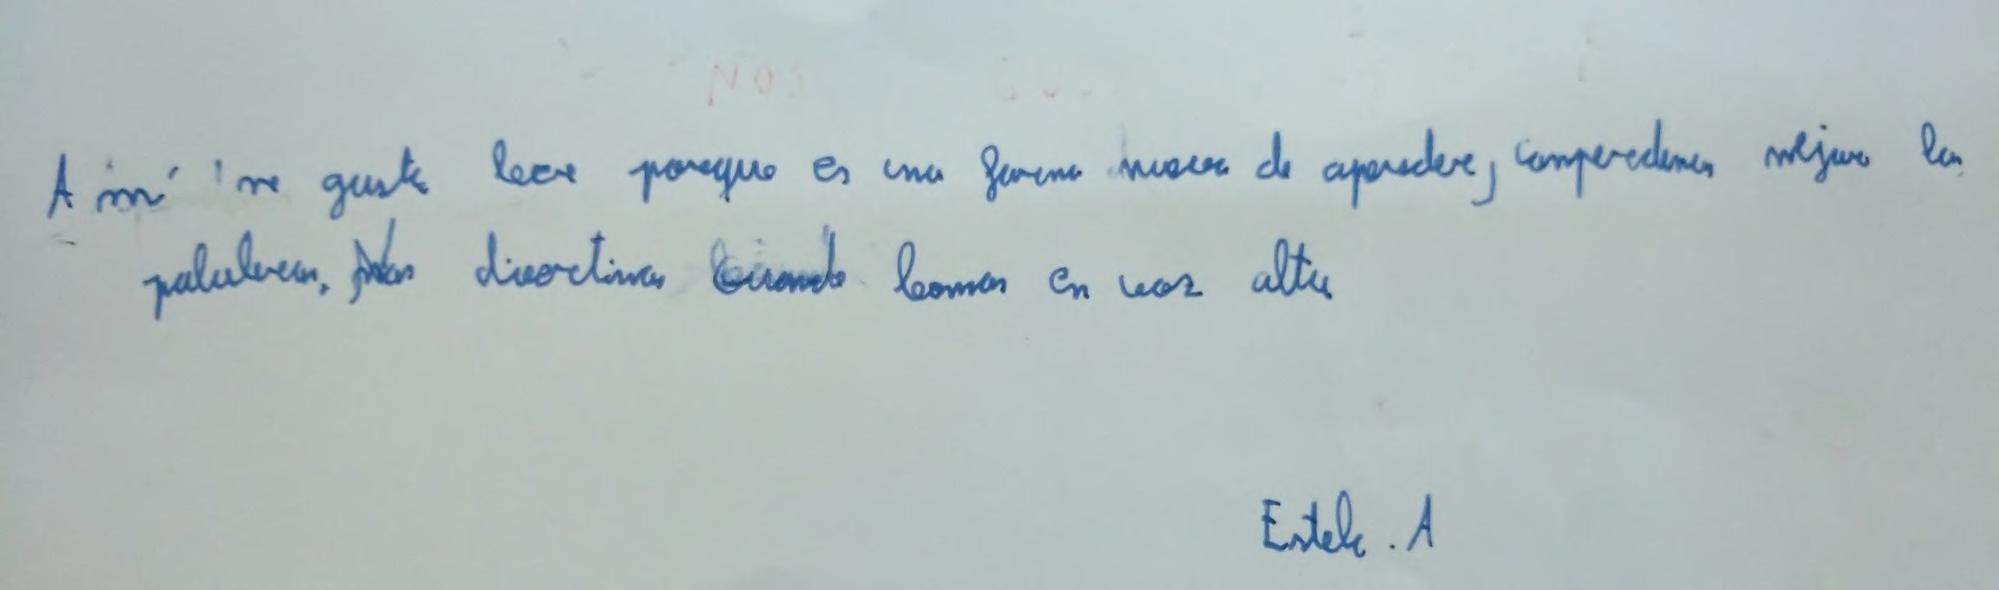 A mí me gusta leer porque es una forma nueva de aprender, comprendemos mejor las
palabras, nos divertimos cuando leemos en voz alta
Estela. A